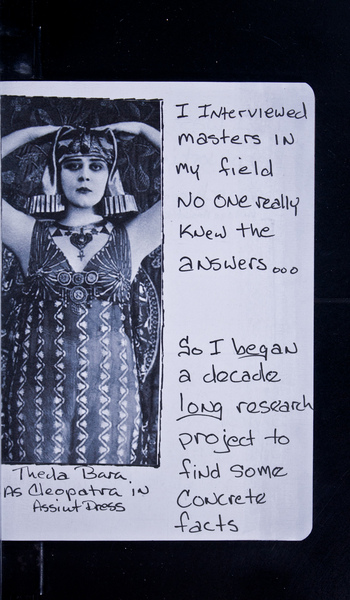 I Interviewed
masters IN
my field
NO ONE really
Knew the
answers...
So I began
a decade
long research
project to
find some
Concrete
facts
Theda Bara
As Cleopatra IN
Assiut Dress